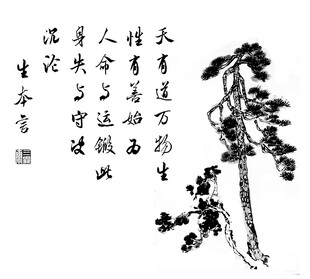 天有道万物生
性有善始为
人命与运锻此
身失与守
沉沦
生本言